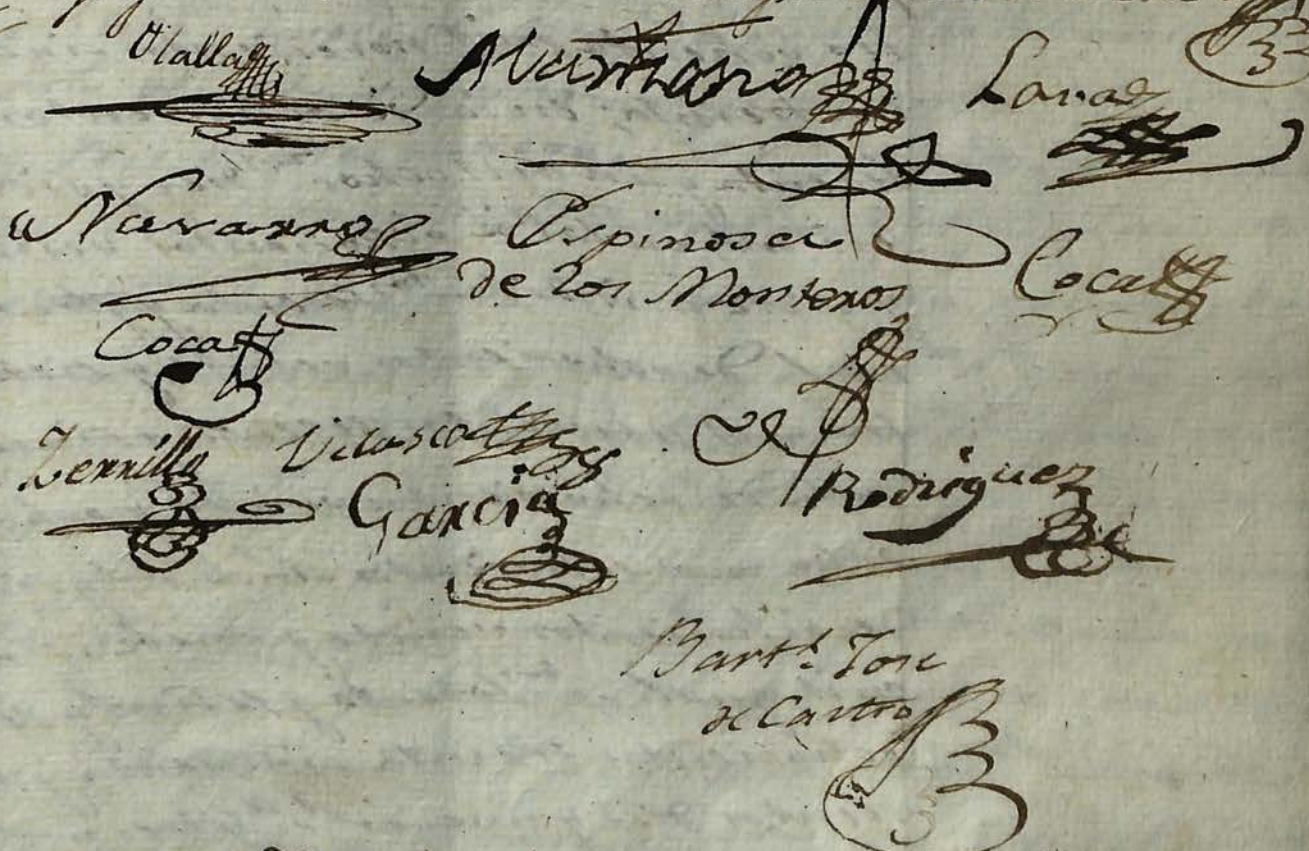 Olalla Lara
Navarro Espinosa
de los Monteros Coca
Coca
Zorrilla Velasco
Garcia Rodriguez
Barth.l Jose
de Castro